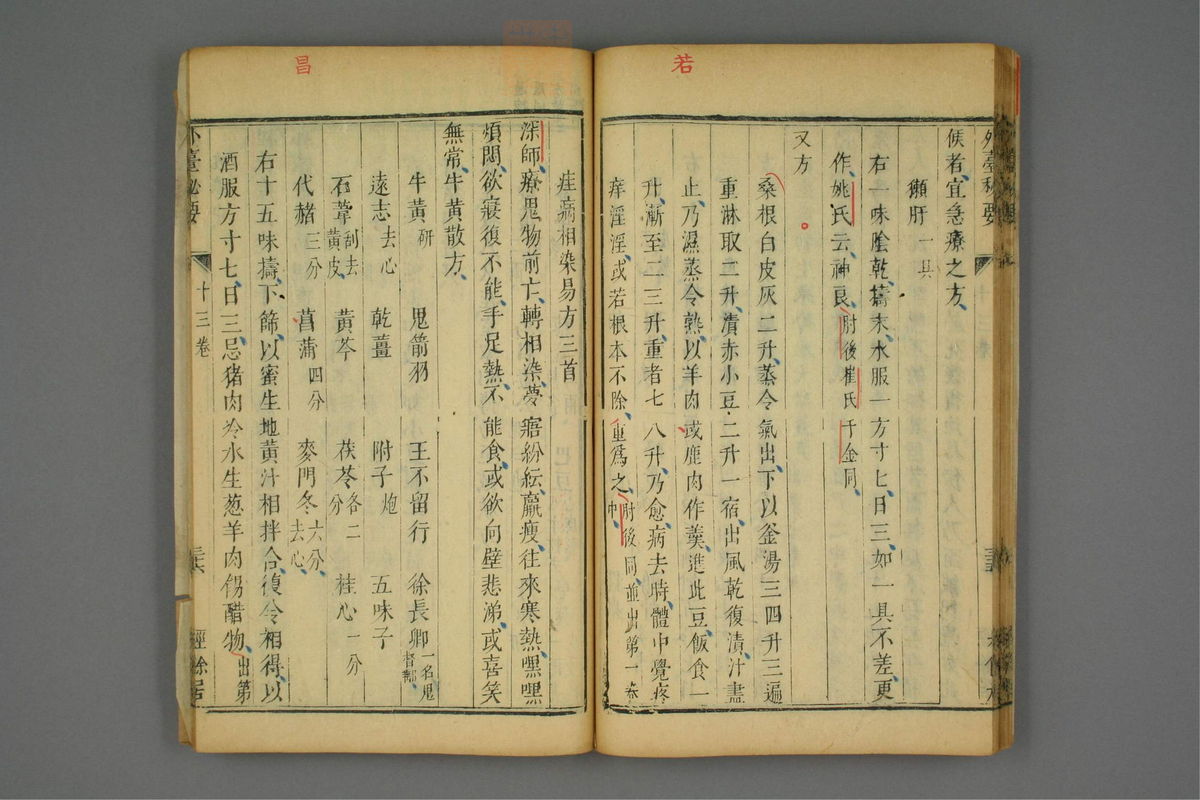 若
候者、宜急療之方、
獺肝一具
右一味陰乾、擣末、水服一方寸匕、日三、如一具不差、更
作、姚氏云神良、肘後崔氏千金同、
又方
桑根白皮灰二升、蒸令氣出、下以釜湯三四升、三遍
重淋取二升、漬赤小豆二升一宿、出風乾、復漬、汁盡
止、乃濕蒸令熟、以羊肉或鹿肉作羹、進此豆飯、食一
升、漸至二三升、重者七八升、乃愈、病去時、體中覺疼
痒淫淫、或若根本不除、重爲之、肘後同、並出第一卷中
昌
疰病相染易方三首
深師療鬼物前亡、轉相染、夢寤紛紜、羸瘦、往來寒熱、嘿嘿
煩悶、欲寢復不能、手足熱、不能食、或欲向壁悲涕、或喜笑
無常、牛黃散方、
牛黃研 鬼箭羽 王不留行 徐長卿一名鬼督郵、
遠志去心 乾薑 附子炮 五味子
石葦刮去黃皮、 黃芩 茯苓各二分 桂心一分
代赭三分 菖蒲四分 麥門冬六分去心、
右十五味、擣下篩、以蜜生地黃汁相拌合、復令相得、以
酒服方寸七、日三、忌猪肉冷水生葱羊肉餳醋物、出第
外臺秘要
十三卷
經餘居